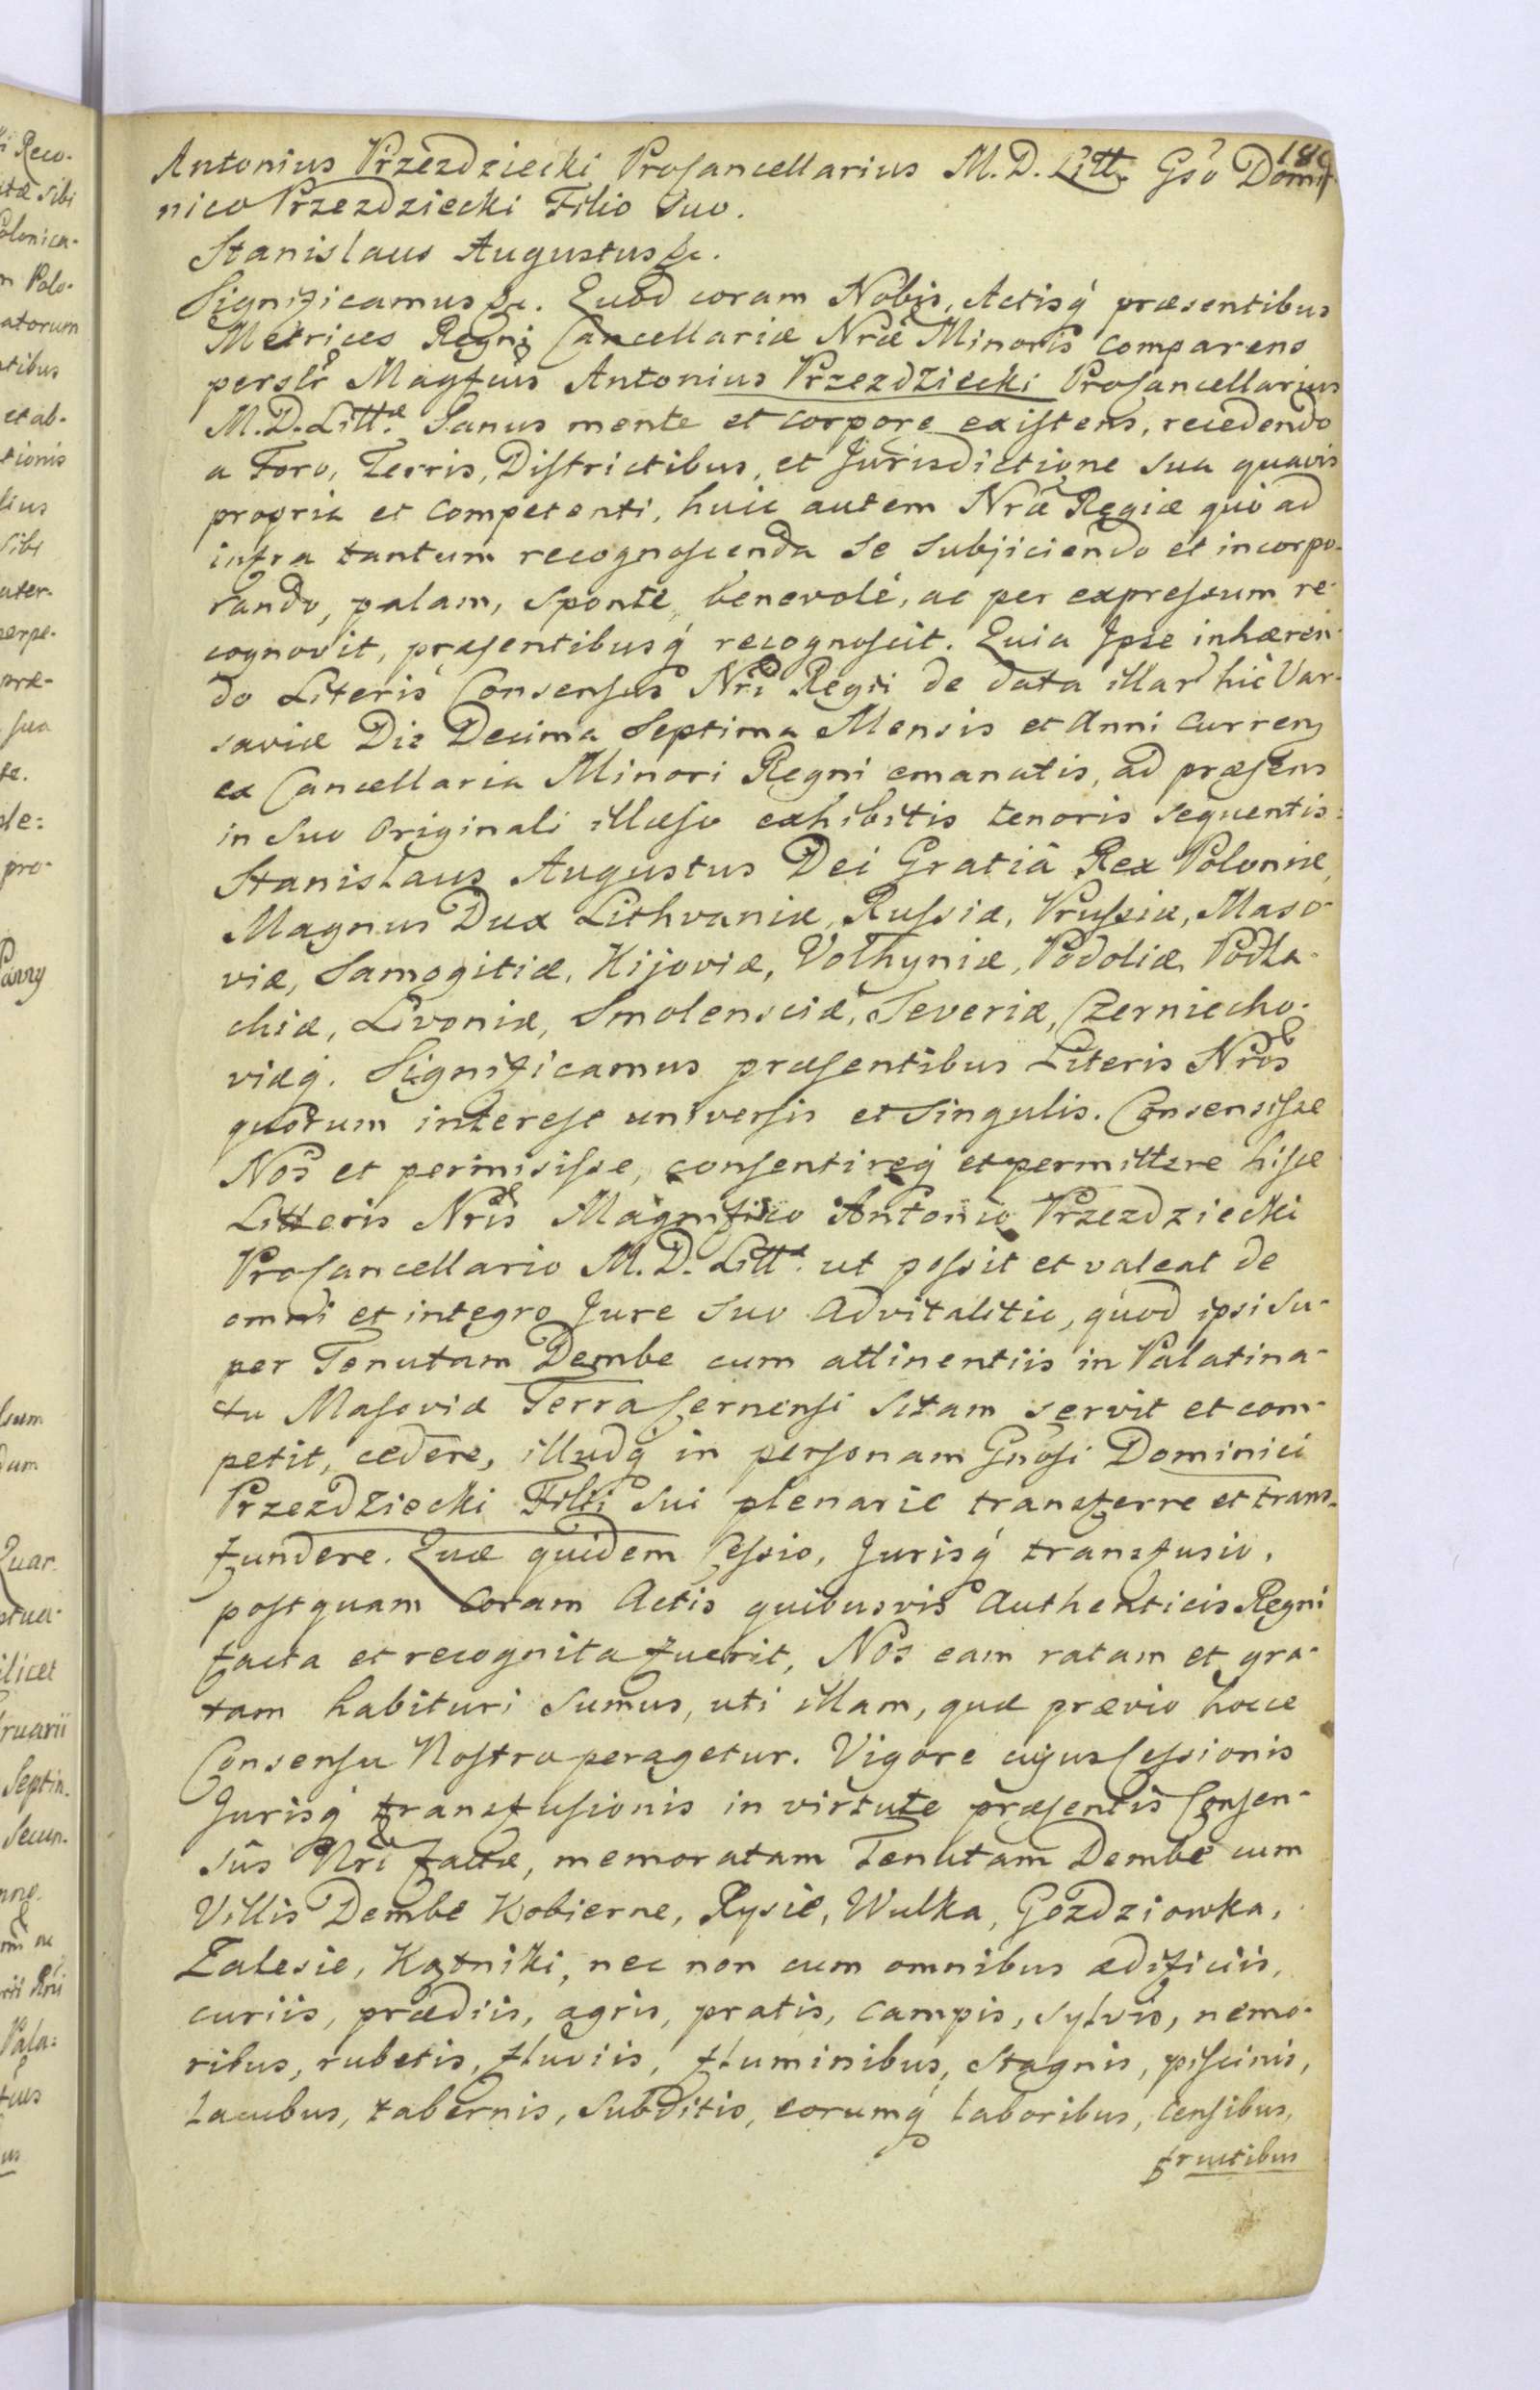 Antonius Przezdziecki ProCancellarius M. D. Litt. Gsó Domi-
nico Przezdziecki Filio Suo.
Stanislaus Augustus &c.
Significamus &c. Quod coram Nobis, Actisq́ præsentibus
Metrices Regni Cancellariæ Nræ Minoris comparens
persłr Magfcus Antonius Przezdziecki ProCancellarius
M. D. Littæ. Sanus mente et corpore existens, recedendo
a Foro, Terris, Districtibus, et Jurisdictione sua quavis
propria et competenti, huic autem Nræ Regiæ quò ad
infra tantum recognoscenda se subjiciendo et incorpo-
rando, palam, sponte, benevolé, ac per expressum re-
cognovit, præsentibusq́ recognoscit. Quia Ipse inhæren-
do Literis Consensus Nri Regii de data illar hic Var-
saviæ Die Decima Septima Mensis et Anni curren
ex Cancellaria Minori Regni emanatis, ad præsens
in suo Originali illæso exhibitis tenoris sequentis:
Stanislaus Augustus Dei Gratiâ Rex Poloniæ,
Magnus Dux Lithvaniæ, Russiæ, Prussiæ, Maso-
viæ, Samogitiæ, Kijoviæ, Volhyniæ, Podoliæ, Podla-
chiæ, Livoniæ, Smolensciæ, Severiæ, Czerniecho-
viæq́. Significamus præsentibus Literis Nris
quorum interese universis et singulis. Consensisse
Nos et permisisse, consentireq́ et permittere hisce
Litteris Nris Magnifico Antonio Przezdziecki
ProCancellario M. D. Littæ. ut possit et valeat de
omni et integro Jure suo advitalitio, quod ipsi su-
per Tenutam Dembe cum attinentiis in Palatina-
tu Masoviæ Terra Cernensi sitam servit et com-
petit, cedere, illudq́ in personam Gnosi Dominici
Przezdziecki Filii sui plenarie transferre et trans-
fundere. Quæ quidem Cessio, Jurisq́ transfusio,
postquam coram Actis quibusvis Authenticis Regni
facta et recognita fuerit, Nos eam ratam et gra-
tam habituri sumus, uti illam, quæ prævio hocce
Consensu Nostro peragetur. Vigore cujus Cessionis
Jurisq́ transfusionis in virtute præsentis Consen-
sûs Nri factæ, memoratam Tenutam Dembe cum
Villis Dembe Kobierne, Rysie, Wulka, Gozdziowka,
Zalesie, Kątniki, nec non cum omnibus ædificiis,
curiis, prædiis, agris, pratis, campis, sylvis, nemo-
ribus, rubetis, fluviis, fluminibus, stagnis, piscinis,
lacubus, tabernis, subditis, eorumq́ laboribus, censibus,
fructibus